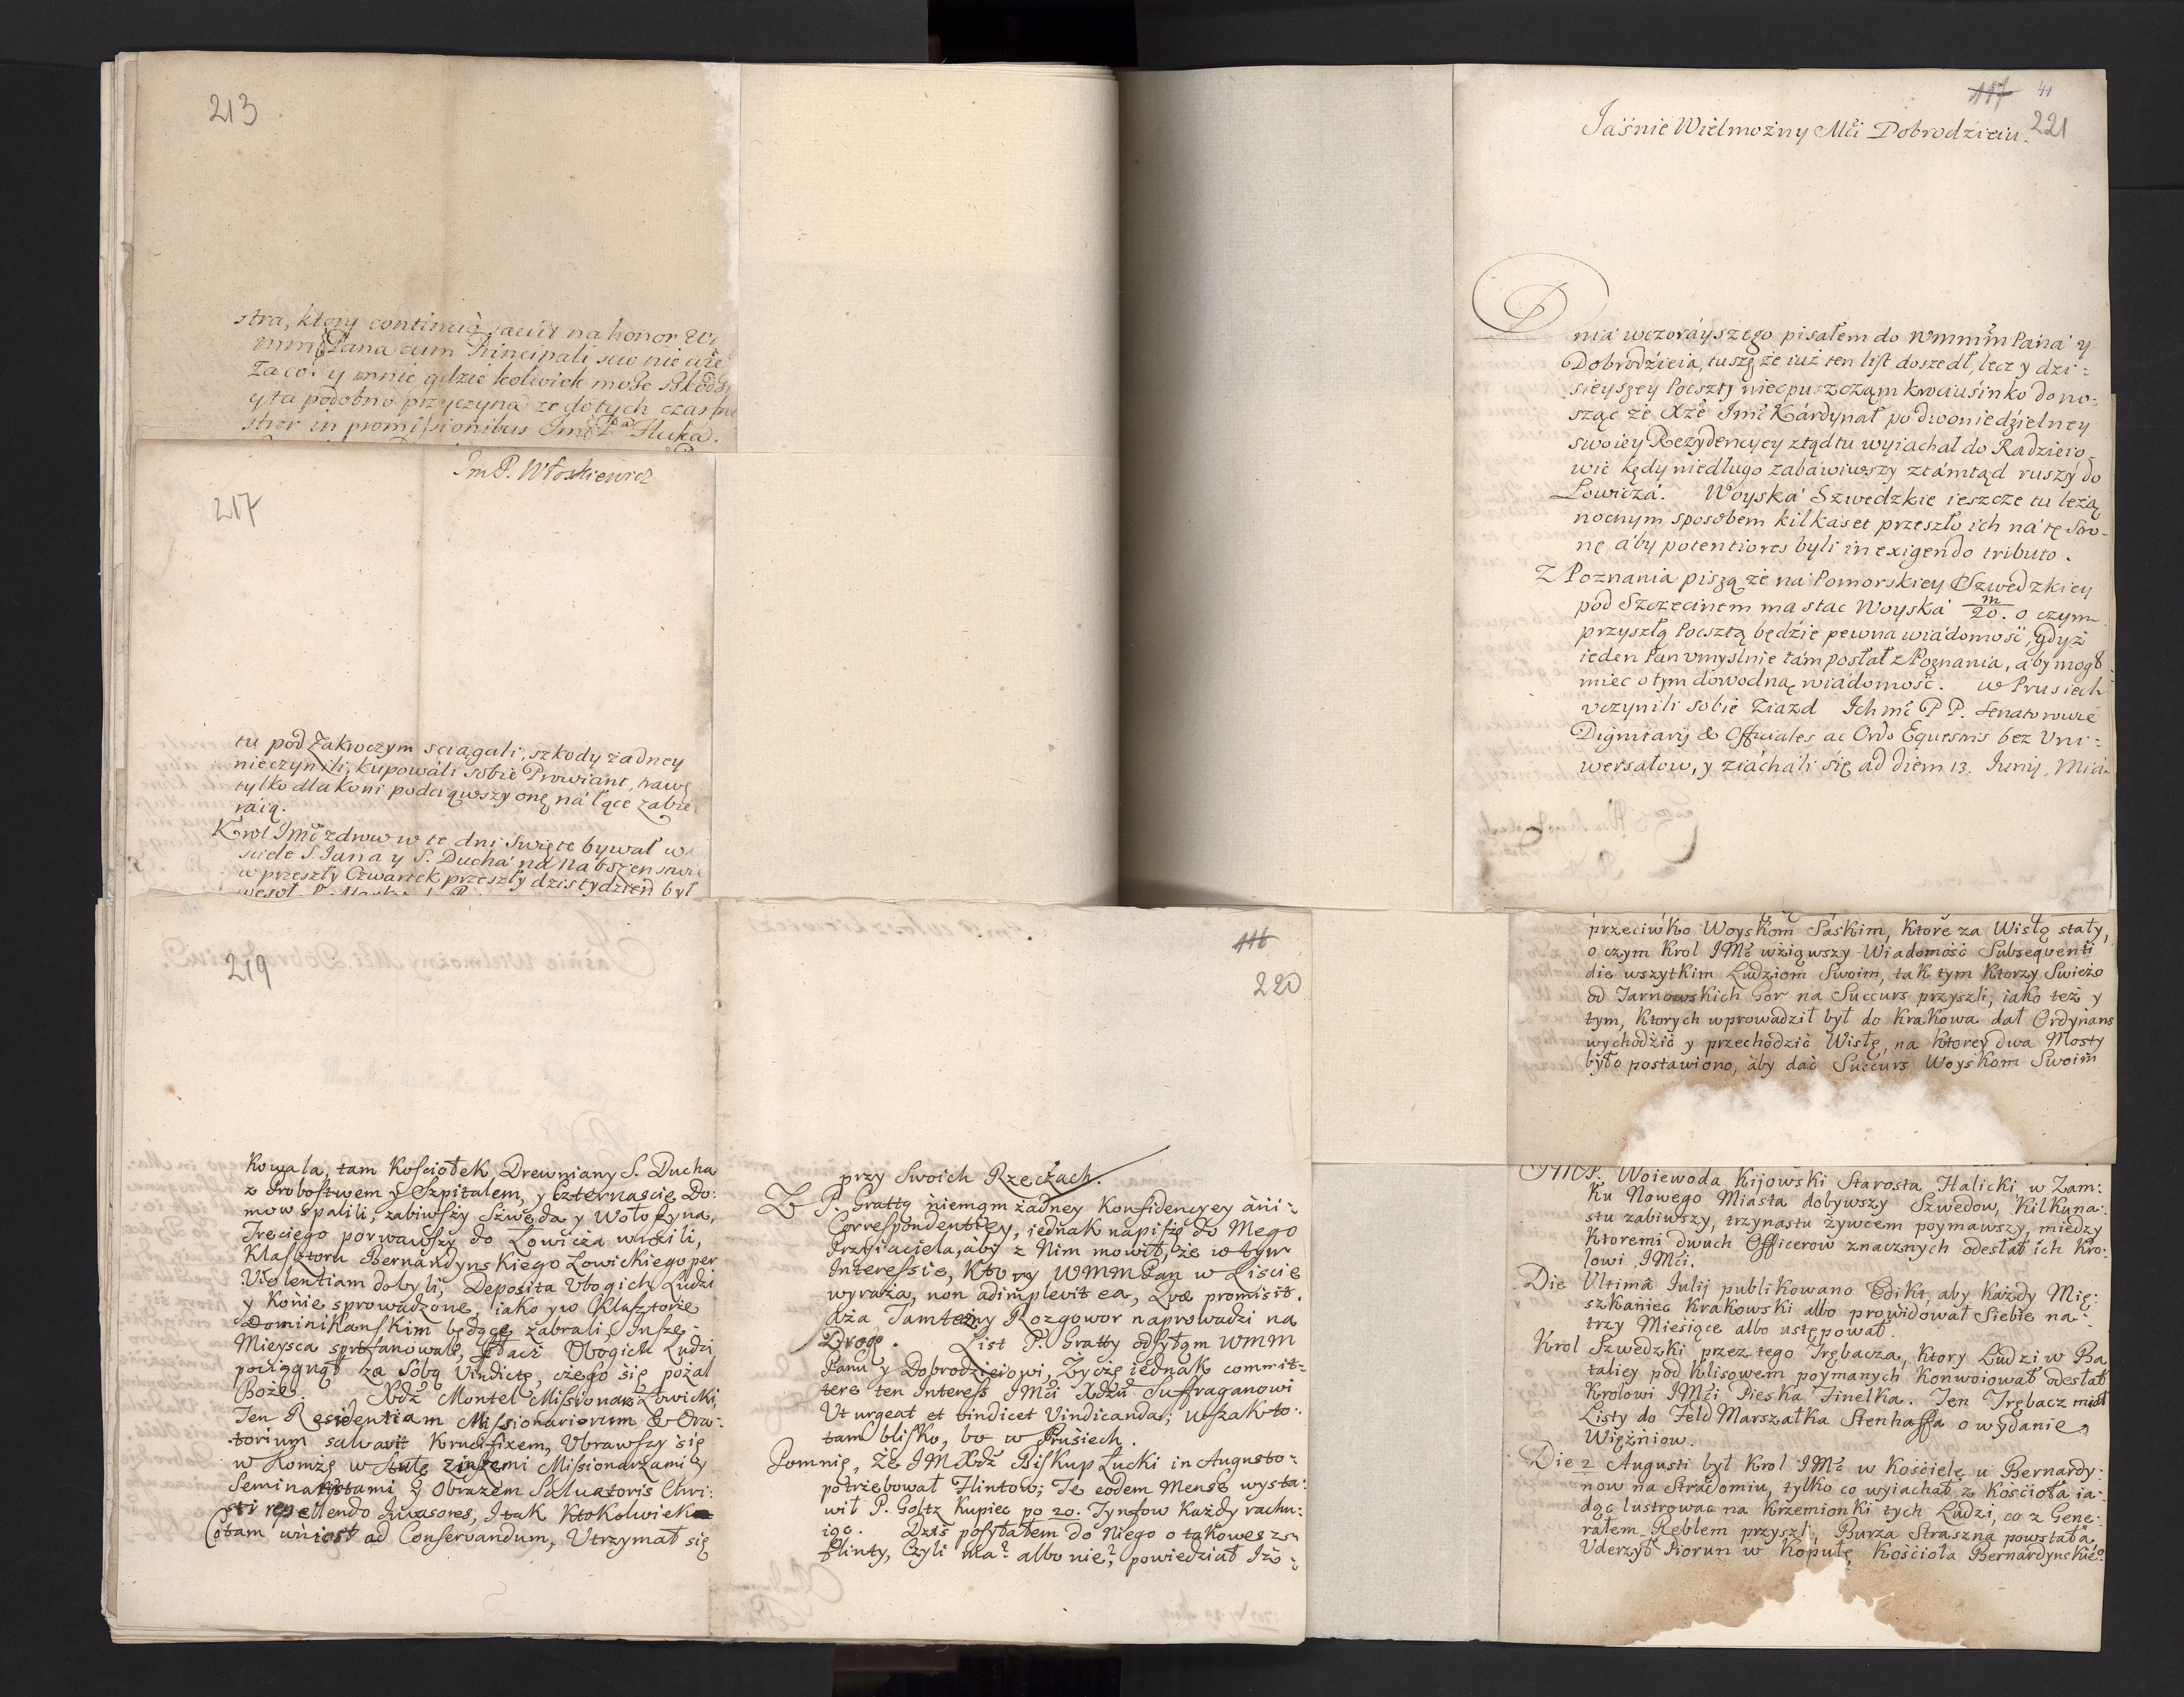 213
stra, ktory continuò jacuit na honor W
mm Pana cum Principali suo nie
za co y mnie gdzie kolwiek moze
y ta podobno przyczyna ze do tych czas
in promissionibus Huka.
Im P. Włoskiewicz
217
tu pod Zakroczym sciagali, szkody zadney
nieczynili, kupowáli sobie Prowiant,
tylko dla koni podciąwszy onę ná łące zabie
raią.
Krol Jmc zdrow w te dni Swięte bywał w
sciele S. Jana y S. Duchá ná Nabozenswie
w przeszły Czwartek przeszły dzis tydzień był
219
kowala, tam Kosciołek Drewniany S. Ducha
z Probostwem y Szpitalem, y Czternascie Do:
mow spalili, zabiwszy Szweda y Wołoszyna,
Treciego porwawszy do Lowicza wrocili,
Klasztoru Bernardynskiego Lowickiego per
Violentiam dobyli, Deposita Ubogich Ludzi
y Konie sprowadzone, iako y w Klasztorze
Dominikanskim będące zabrali, Insze
Mieysca Płacz Ubogich Ludzi
pociągnął za Sobą Vindictę, czego się pożal
Boże. Xdz Montel Missionarz Łowicki,
Ten Residentiam Missionariorum & Ora:
torium salvavit Krucifixem, Ubrawszy się
w Komzę w Stułę z inszemi Missionarzami y
Seminaristami y Obrazem Salvatoris Chri:
sti repellendo Invasores, Itak Ktokolwiek
Cotam wniosł ad Conservandum, Utrzymał się
116
220
przy Swoich Rzeczach.
Z P. Grattą niemam żadney Konfidencyey ani
Correspondentiey, iednak napiszę do Mego
Przyiaciela, aby z Nim mowił, że w tym
Interessie, Ktory WMMPan w Liscie
wyraża, non adimplevit ea, Quæ promisit.
Aża Tamteyszy Rozgowor naprowadzi na
Drogę. List P. Gratty odsyłam WMM
Panu y Dobrodzieiowi, Zyczę iednak commit:
tere ten Interess JMci Xdzu Suffraganowi
Ut urgeat et vindicet Vindicanda; wszak to
tam blisko, bo w Prusiech.
Pomnię, Że JM Xdz Biskup Łucki in Augusto
potrzebował Flintow; Te eodem Mense wysta:
wił P. Goltz Kupiec po 20. Tynfow Każdy rachu:
iąc. Dziś posyłałem do Niego o takowesz
Flinty, Czyli ma? albo nie?, powiedział Iż
117 41
221
Jaśnie Wielmożny Mći Dobrodzieiu.
Dnia wczorayszego pisałem do Wmmm Pana y
Dobrodzieia, tuszę że iuż ten list doszedł, lecz y dzi:
sieyszey Poczty nieopuszczam krociusinko dono:
sząc że Xże Jmć Kárdynał po dwoniedzielney
swoiey Rezydencyey ztąd tu wyiachał do Radzieio
wic kędy niedługo zabáwiwszy ztámtąd ruszy do
Łowiczá. Woyská Szwedzkie ieszcze tu leżą
nocnym sposobem kilkaset przeszło ich ná tę Stro-
nę áby potentiores byli in exigendo tributo.
Z Poznania piszą że ná Pomorskiey Szwedzkiey
pod Szczecinem ma stac Woyská m/20. o czym
przyszłą Pocztą będzie pewna wiádomość, gdyż
ieden Pan vmyslnie tám posłał z Poznania, áby mogł
miec o tym dowodną wiádomość. w Prusiech
vczynili sobie Ziazd Ichmć PP. Senatorowie
Dignitarij & Officiales ac Ordo Equestris bez Vni:
wersałow, y ziácháli się ad diem 13. Junij,
przeciwko Woyskom Saskim, Ktore za Wisłą stały,
o czym Krol JMć wziąwszy Wiadomość Subsequenti
die wszytkim Ludziom Swoim, tak tym Ktorzy Swieżo
od Tarnowskich Gor na Succurs przyszli, iako też y
tym, Ktorych wprowadził był do Krakowa dał Ordynans
wychodzić y przechodzić Wisłę, na Ktorey dwa Mosty
było postawiono, áby dać Succurs Woyskom Swoim
JMP. Woiewoda Kijowski Starosta Halicki w Zam:
Ku Nowego Miasta dobywszy Szwedow, Kilkuna:
stu zabiwszy, trzynastu żywcem poymawszy, miedzy
Ktoremi dwuch Officerow znacznych odesłał ich Kro:
lowi JMći.
Die Ultimâ Julij publikowano Edikt, aby Każdy Mię:
szkaniec Krakowski albo prowidował Siebie na
trzy Miesiące albo ustępował.
Krol Szwedzki przez tego Trębacza, Ktory Ludzi w Ba
talicy pod Klisowem poymanych Konwoiował odesłał
Krolowi JMći Pieska Finelka. Ten Trębacz miał
Listy do Feld Marszałka Stenhaffa o wydanie
Więźniow.
Die 2 Augusti był Krol JMć w Kościele u Bernardy:
now na Stradomiu, tylko co wyiachał z Kościoła ia:
dąc lustrowac na Krzemionki tych Ludzi, co z Gene:
rałem Reblem przyszli, Burza Straszna powstała,
Uderzył Piorun w Kopułę Kościoła Bernardynskie